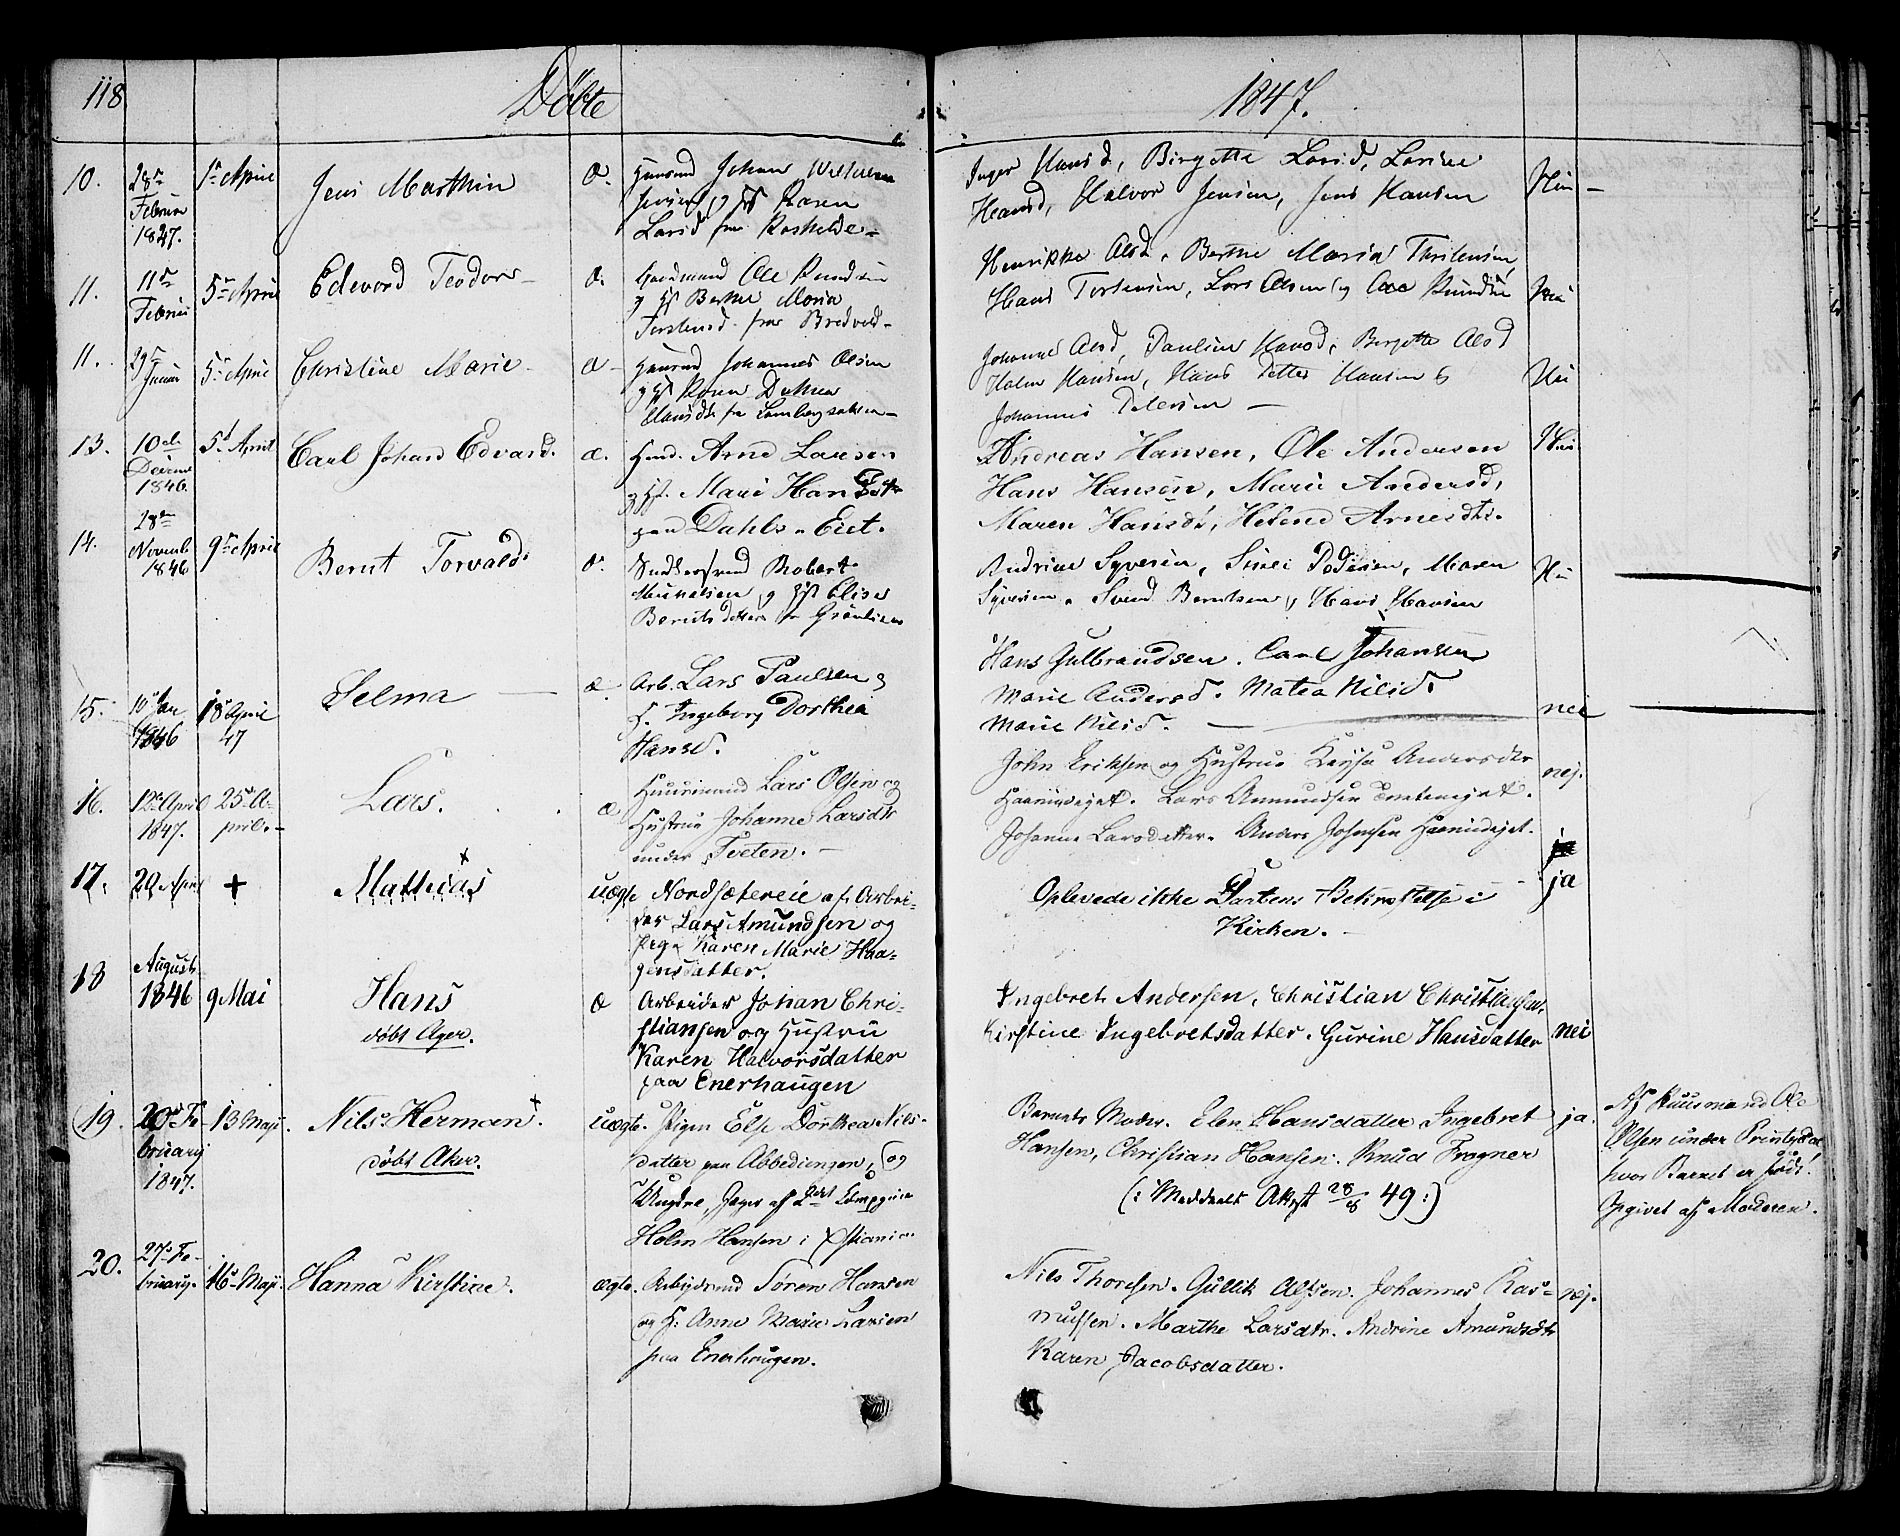 118 Döbte 1847.
10. 28de Februar 1847. 1ste April Jens Marthin Æ. Huusmd Johan
Jensen og H. Karen
Larsd fra
Inger Hansd, Birgette Larsd, Lovise
Hansd, Halvor Jensen, Jens Hansen
11. 11te Februar 5te April Edevard Teodor Æ. Huusmand Ole Knudsen
og H. Berthe Maria
Torstensd. fra Bredvold
Henrikke Olsd, Berthe Maria Torstensen,
Hans Torstensen, Lars Olsen og Ole Knudsen
11. 29de Januar 5te April Christine Marie Æ Huusmd Johannes Olsen
og H. Karen
Hansdtr fra
Johanne Olsd, Pauline Hansd, Birgette Olsd
Holm Hansen, Hans Petter Hansen &
Johannes Petersen
13. 10de Decemb 1846. 5t April Carl Johan Edvard. æ. Husd. Arne Larsen
og H. Mari Hansdtr
paa Dahls-Eiet.
Andreas Hansen, Ole Andersen
Hans Hansen, Marie Andersd,
Maren Hansdt, Helene Arnesdtr.
14. 28de Novemb 1846 9de April Bernt Torvald Æ. Robert
og H. Elise
Berntsdatter fr Grönlien
Andrine Syversen, Maren
Syversen, Svend Berntsen, Hans Hansen
15. 10de Jan 1846 18de April 47 Selma æ Arb. Lars Paulsen og
H. Ingeborg Dorthea
Hansd.
Hans Gulbrandsen. Carl Johansen
Marie Andersd. Matea Nilsd.
Marie Nilsd. nei
16. 12te April 1847. 25de April. Lars. æ Huusmand Lars Olsen og
Hustrue Johanne Larsdtr
under Tveten.
John Eriksen og Hustrue Kaysa Andersdtr
Haanudejet. Lars Amundsen Tvetenejet.
Johanne Larsdatter. Anders Johnsen Haanudejet. nej.
17. 20 April + Mathias + uægte Nordsætereie af Arbei-
der Lars Amundsen og
Pige Karen Marie Haa-
gensdatter.
Oplevede ikke Daabens Bekræftelse i
Kirken. ja
18 August 1846 9 Mai Hans
döbt Ager. æ Arbeider Johan Chri-
stiansen og Hustru
Karen Halvorsdatter
paa Enerhaugen
Ingebret Andersen, Christian Christiansen,
Kirstine Ingebretsdatter. Gurine Hansdatter nei
19. 20de Februarij 1847. 13 Maji. Nils Herman +.
döbt Aker. uægte. Pigen Else Dorthea Nils-
datter paa Abbediengen, og
Ungkrl, Jæger af 2det Compagnie
Holm Hansen i Xstiania
Barnets Moder. Elen Hansdatter Ingebret
Hansen, Christian Hansen. Knud Frogner
(: Meddeelt Attest 28/8 49:) ja.
Af Huusmand Ole
Olsen under Prinsdal
hvor Barnet er född!
Opgivet af Moderen.
20. 27de Februarij. 16de Maji. Hanna Kirstine. ægte. Arbejdsmd Sören Hansen
og H. Anne Marie Larsen
paa Enerhaugen.
Nils Thoresen. Gullik Olsen. Johannes Ras-
mussen. Marthe Larsdtr. Andrine Amundsdtr
Karen Jacobsdatter. nej.